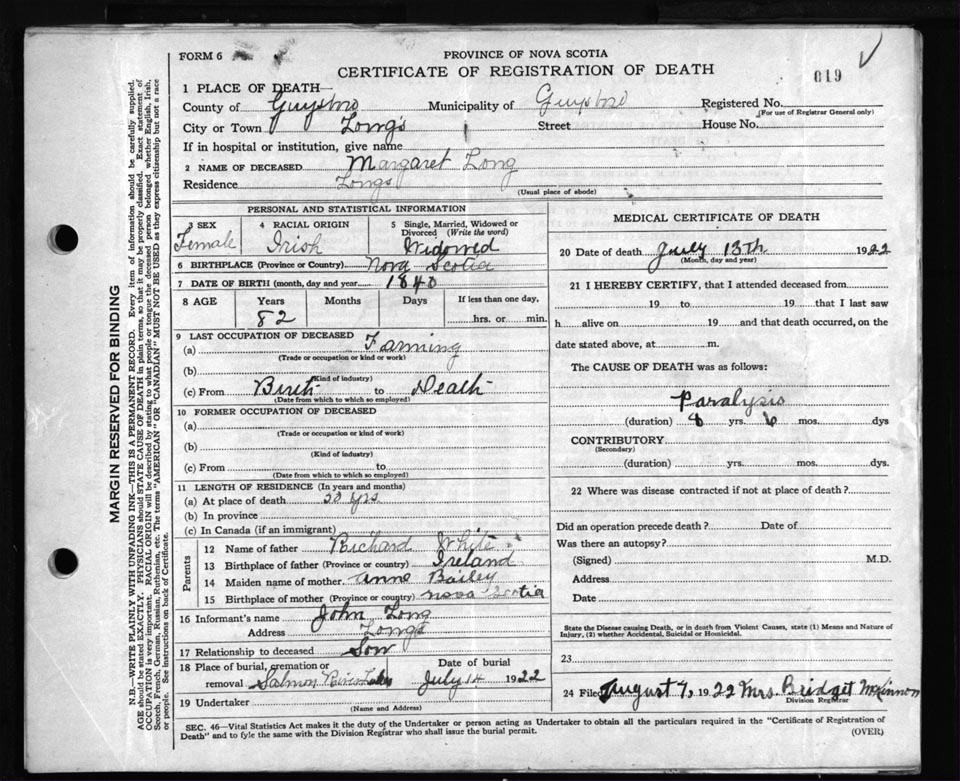 FORM 6
PROVINCE OF NOVA SCOTIA
CERTIFICATE OF REGISTRATION OF DEATH
019
1 PLACE OF DEATH—
County of Guysboro Municipality of Guysboro Registered No.
(For use of Registrar General only)
City or Town Longs Street House No.
If in hospital or institution, give name
2 NAME OF DECEASED Margaret Long
Residence Longs
(Usual place of abode)
PERSONAL AND STATISTICAL INFORMATION
3 SEX Female
4 RACIAL ORIGIN Irish
5 Single, Married, Widowed or Divorced (Write the word) Widowed
6 BIRTHPLACE (Province or Country) Nova Scotia
7 DATE OF BIRTH (month, day and year) 1840
8 AGE Years Months Days If less than one day,
82 hrs. or min.
9 LAST OCCUPATION OF DECEASED
(a) Farming
(Trade or occupation or kind or work)
(b)
(Kind of industry)
(c) From Birth to Death
(Date from which to which so employed)
10 FORMER OCCUPATION OF DECEASED
(a)
(Trade or occupation or kind of work)
(b)
(Kind of industry)
(c) From to
(Date from which to which so employed)
11 LENGTH OF RESIDENCE (In years and months)
(a) At place of death 50 yrs.
(b) In province
(c) In Canada (if an immigrant)
Parents
12 Name of father Richard White
13 Birthplace of father (Province or country) Ireland
14 Maiden name of mother Anne Bailey
15 Birthplace of mother (Province or country) Nova Scotia
16 Informant's name John Long
Address Longs
17 Relationship to deceased Son
18 Place of burial, cremation or removal Salmon River Lake Date of burial July 14 1922
19 Undertaker
(Name and Address)
MEDICAL CERTIFICATE OF DEATH
20 Date of death July 13th 1922
(Month, day and year)
21 I HEREBY CERTIFY, that I attended deceased from
19 to 19 that I last saw
h alive on 19 and that death occurred, on
date stated above, at m.
The CAUSE OF DEATH was as follows:
Paralysis
(duration) 8 yrs. 6 mos. dys
CONTRIBUTORY
(Secondary)
(duration) yrs. mos. dys.
22 Where was disease contracted if not at place of death?
Did an operation precede death? Date of
Was there an autopsy?
(Signed) M.D.
Address
Date
State the Disease causing Death, or in death from Violent Causes, state (1) Means and Nature of Injury, (2) whether Accidental, Suicidal or Homicidal.
23
24 Filed August 7, 1922 Mrs. Bridget McKinnon
Division Registrar
SEC. 46—Vital Statistics Act makes it the duty of the Undertaker or person acting as Undertaker to obtain all the particulars required in the "Certificate of Registration of
Death" and to fyle the same with the Division Registrar who shall issue the burial permit.
(OVER)
MARGIN RESERVED FOR BINDING
N.B.—WRITE PLAINLY WITH UNFADING INK—THIS IS A PERMANENT RECORD. Every item of information should be carefully supplied.
AGE should be stated EXACTLY. PHYSICIANS should STATE CAUSE OF DEATH in plain terms, so that it may be properly classified. Exact statement of
OCCUPATION is very important. RACIAL ORIGIN will be described by stating to what people or tongue the deceased person belonged whether English, Irish,
Scotch, French, German, Russian, Ruthenian, etc. The terms "AMERICAN" OR "CANADIAN" MUST NOT BE USED as they express citizenship but not a race
or people. See instructions on back of Certificate.